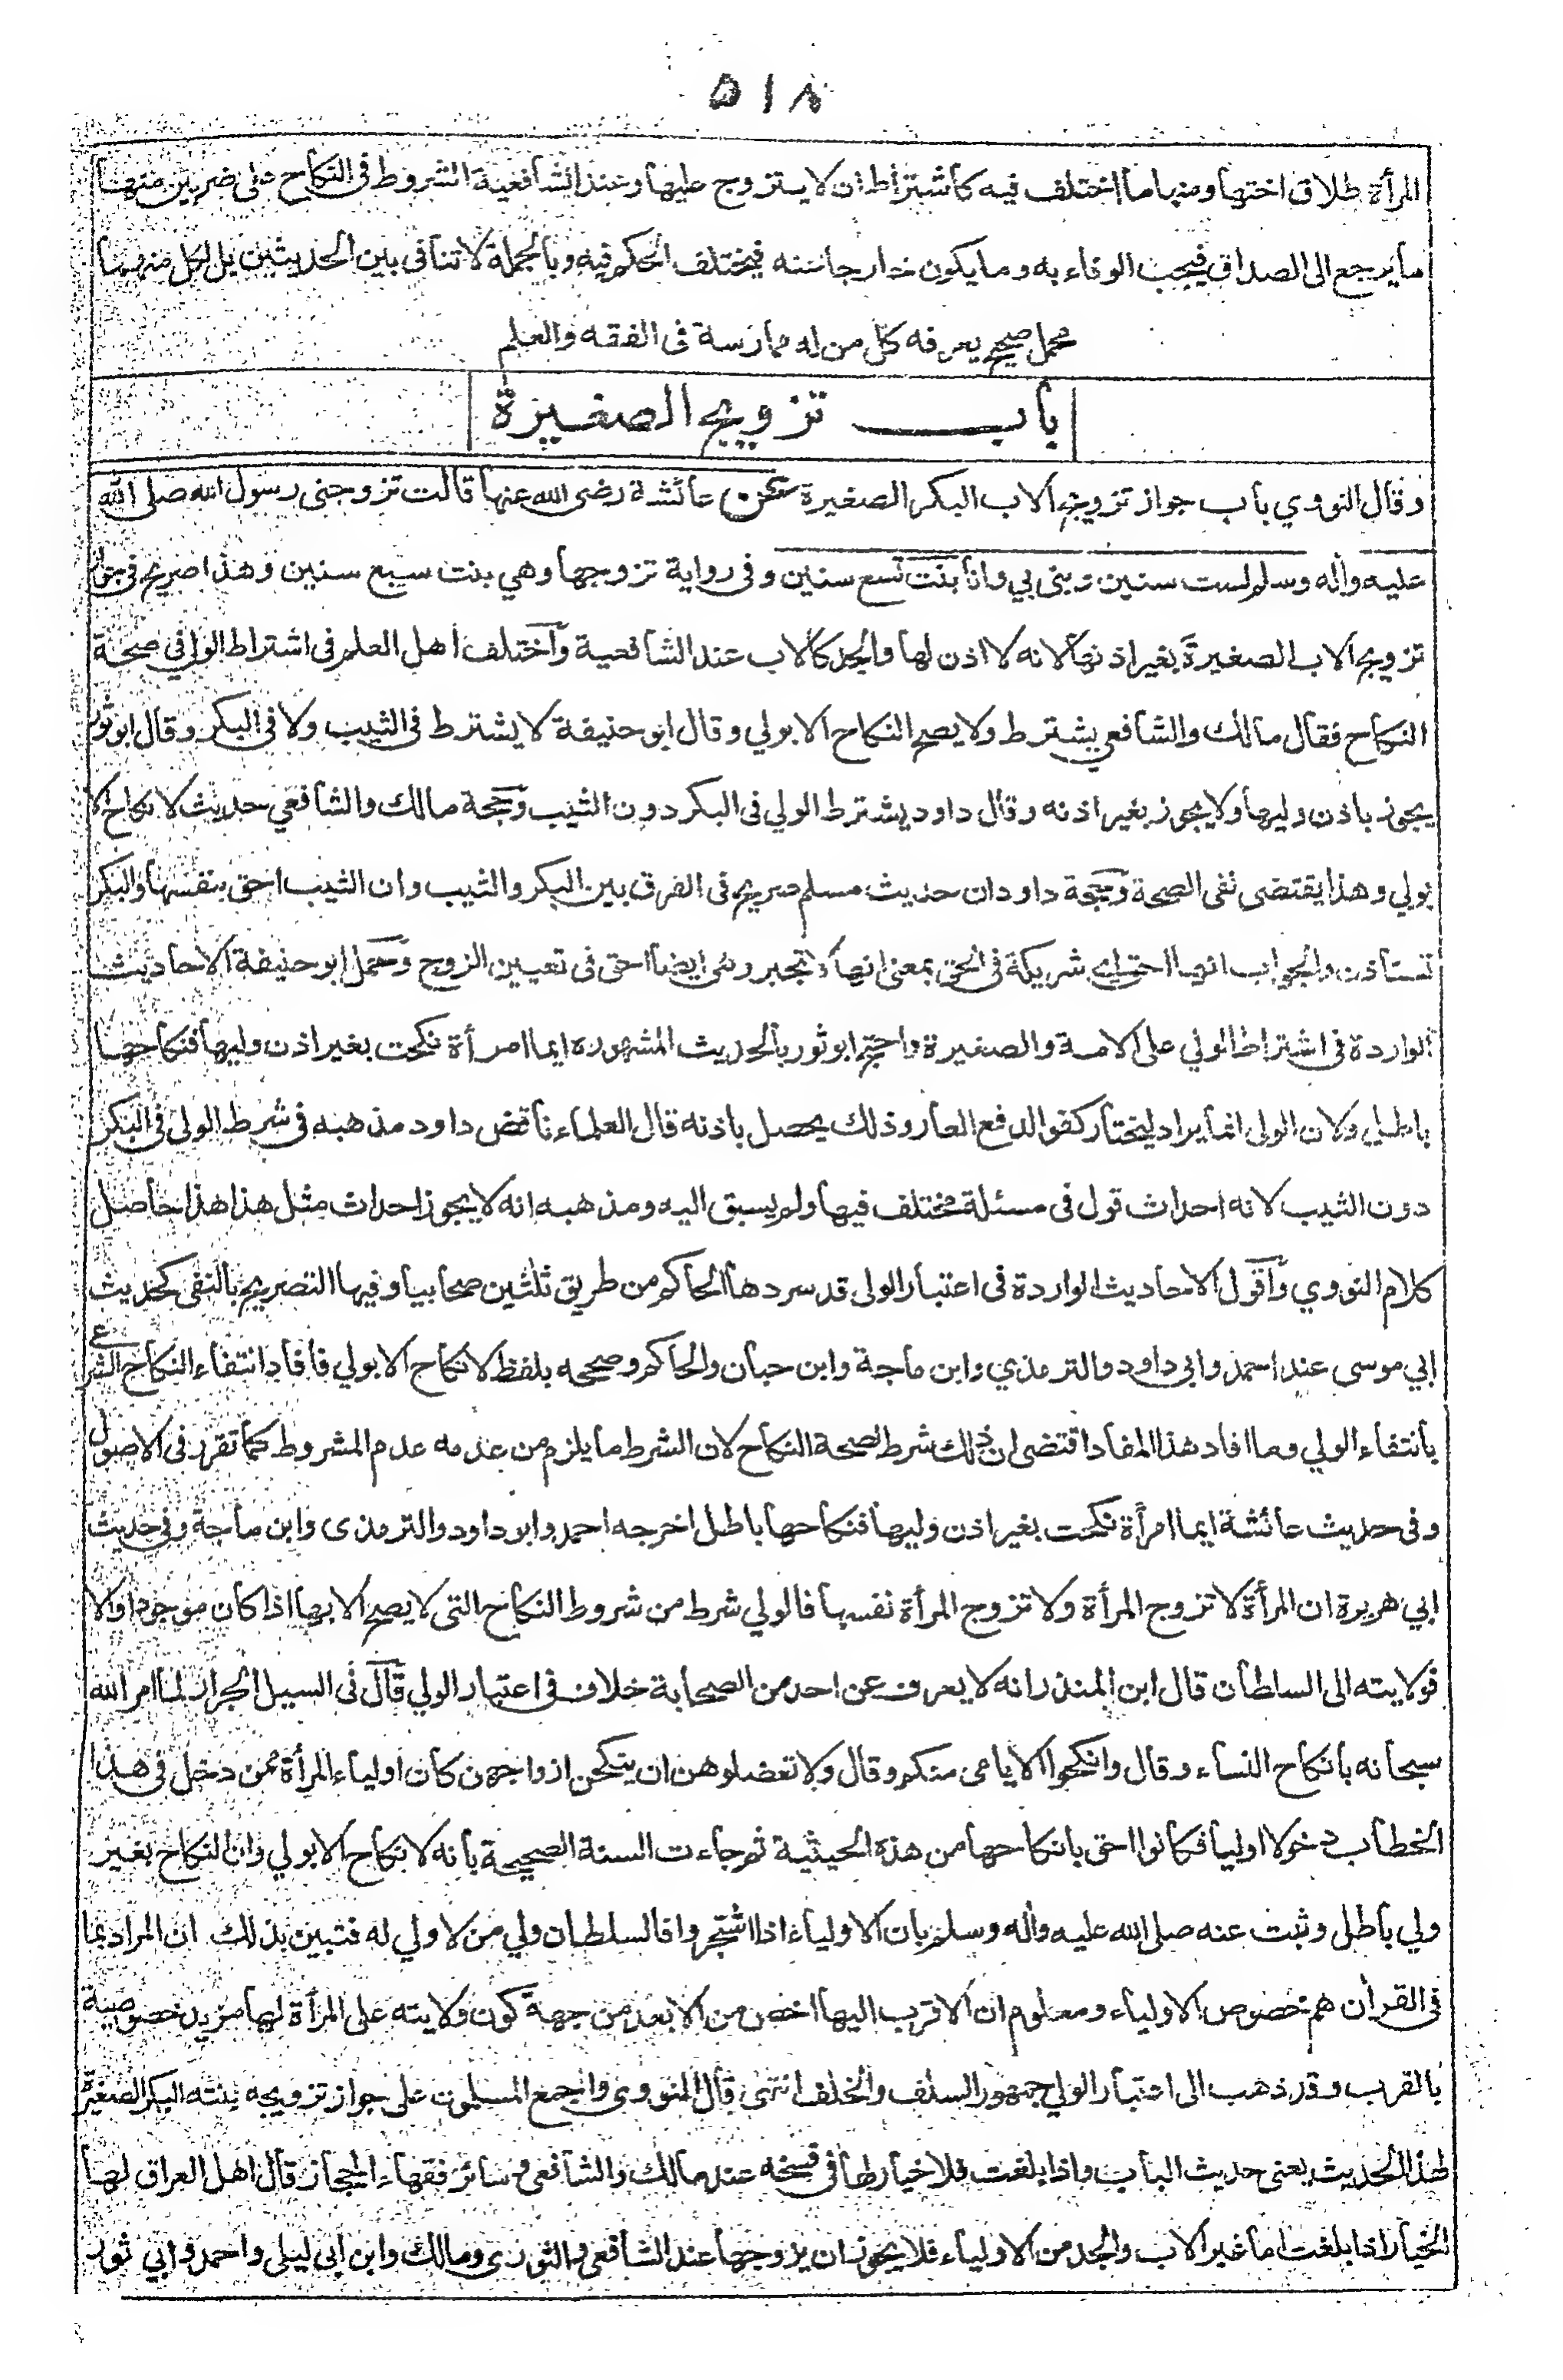 ٥١٨
المرأة طلاق اختها ومنها ما اختلف فيه كاشتراط ان لا يتزوج عليها وعند الشافعية الشروط فى النكاح على ضربين منها
ما يرجع الى الصداق فيجب الوفاء به وما يكون خارجا عنه فيختلف الحكم فيه وبالجملة لا تنافى بين الحديثين بل لكل منهما
محمل صحيح يعرفه كل من له ممارسة فى الفقه والعلم
باب تزويج الصغيرة
وقال النووي باب جواز تزويج الاب البكر الصغيرة عن عائشة رضى الله عنها قالت تزوجنى رسول الله صلى الله
عليه واله وسلم لست سنين وبنى بي وانا بنت تسع سنين وفى رواية تزوجها وهي بنت سبع سنين وهذا صريح فى جواز
تزويج الاب الصغيرة بغير اذنها لانه لا اذن لها والجد كالاب عند الشافعية واختلف اهل العلم فى اشتراط الولي في صحة
النكاح فقال مالك والشافعي يشترط ولا يصح النكاح الا بولي وقال ابو حنيفة لا يشترط فى الثيب ولا فى البكر وقال ابو ثور
يجوز باذن وليها ولا يجوز بغير اذنه وقال داود يشترط الولي فى البكر دون الثيب وحجة مالك والشافعي حديث لا نكاح الا
بولي وهذا يقتضى نفى الصحة وحجة داود ان حديث مسلم صريح فى الفرق بين البكر والثيب وان الثيب احق بنفسها والبكر
تستأذن والجواب انها احق اي شريكة فى الحق بمعنى انها لا تجبر وهى ايضا احق فى تعيين الزوج وحمل ابو حنيفة الاحاديث
الواردة فى اشتراط الولي على الامة والصغيرة واحتج ابو ثور بالحديث المشهور ايما امرأة نكحت بغير اذن وليها فنكاحها
باطل ولان الولى انما يراد ليختار كفوا لدفع العار وذلك يحصل باذنه قال العلماء ناقض داود مذهبه فى شرط الولى فى البكر
دون الثيب لانه احداث قول فى مسئلة مختلف فيها ولم يسبق اليه ومذهبه انه لا يجوز احداث مثل هذا هذا حاصل
كلام النووي واقول الاحاديث الواردة فى اعتبار الولى قد سردها الحاكم من طريق ثلثين صحابيا وفيها التصريح بالنفى كحديث
ابي موسى عند احمد وابى داود والترمذي وابن ماجة وابن حبان والحاكم وصححه بلفظ لا نكاح الا بولي فافاد انتفاء النكاح الشرعي
بانتفاء الولي وما افاد هذا المفاد اقتضى ان ذلك شرط لصحة النكاح لان الشرط ما يلزم من عدمه عدم المشروط كما تقرر فى الاصول
وفى حديث عائشة ايما امرأة نكحت بغير اذن وليها فنكاحها باطل اخرجه احمد وابو داود والترمذى وابن ماجة وفى حديث
ابي هريرة ان المرأة لا تزوج المرأة ولا تزوج المرأة نفسها فالولي شرط من شروط النكاح التى لا يصح الا بها اذا كان موجودا والا
فولايته الى السلطان قال ابن المنذر انه لا يعرف عن احد من الصحابة خلاف فى اعتبار الولي قال فى السيل الجرار لما امر الله
سبحانه بانكاح النساء وقال وانكحوا الايامى منكم وقال ولا تعضلوهن ان ينكحن ازواجهن كان اولياء المرأة ممن دخل فى هذا
الخطاب دخولا اوليا فكانوا احق بانكاحها من هذه الحيثية ثم جاءت السنة الصحيحة بانه لا نكاح الا بولي وان النكاح بغير
ولي باطل وثبت عنه صلى الله عليه واله وسلم بان الاولياء اذا اشتجروا فالسلطان ولي من لا ولي له فتبين بذلك ان المراد بما
فى القران هم خصوص الاولياء ومعلوم ان الاقرب اليها اخص من الابعد من جهة كون ولايته على المرأة لها مزيد خصوصية
بالقرب وقد ذهب الى اعتبار الولي جمهور السلف والخلف انتهى قال النووى واجمع المسلمون على جواز تزويجه بنته البكر الصغيرة
لهذا الحديث يعنى حديث الباب واذا بلغت فلا خيار لها فى فسخه عند مالك والشافعى وسائر فقهاء الحجاز وقال اهل العراق لها
الخيار اذا بلغت اما غير الاب والجد من الاولياء فلا يجوز ان يزوجها عند الشافعى والثورى ومالك وابن ابى ليلى واحمد وابي ثور